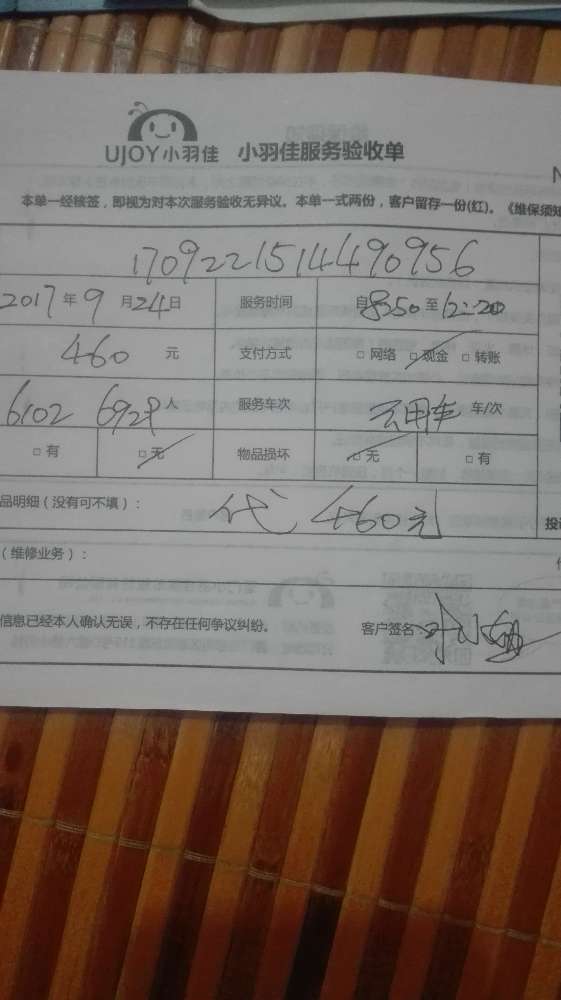 UJOY小羽佳 小羽佳服务验收单
N
本单一经核签，即视为对本次服务验收无异议。本单一式两份，客户留存一份(红)。《维保须知
1709221514490956
2017年9月24日 服务时间 自8:50至12:20
460元 支付方式 □网络 □现金 □转账
6102 6929人 服务车次 云用车 车/次
□有 □无 物品损坏 □无 □有
品明细（没有可不填）： 代 460元 投诉
（维修业务）：
信息已经本人确认无误，不存在任何争议纠纷。 客户签名